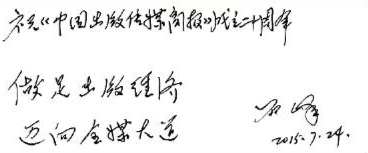 祝《中国出版传媒商报》成立二十周年
做足出版经济
迈向全媒大道
石峰
2015.7.24.